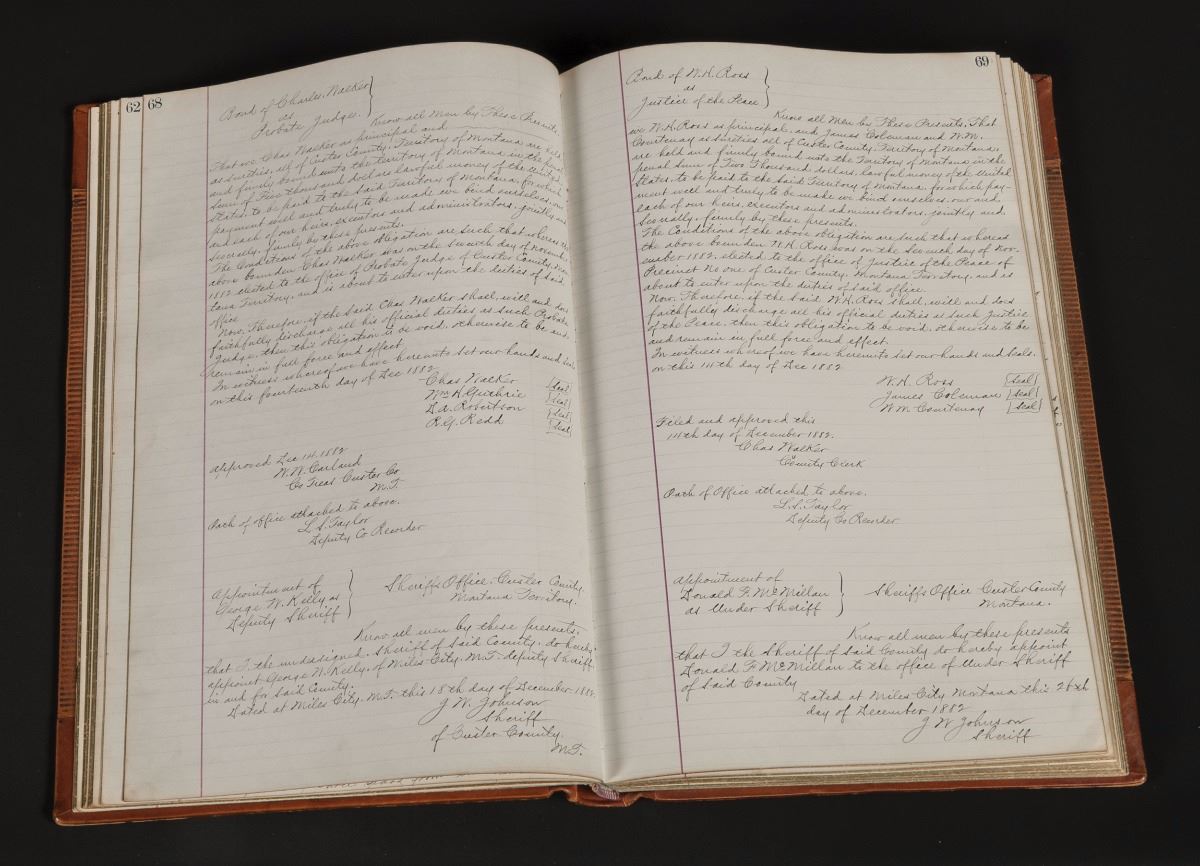 62 68
Bond of Charles Walker
as
Probate Judge.
Know all Men by These Presents,
That we Chas Walker as principal and
as sureties, all of Custer County, Territory of Montana are held
and firmly bound unto the Territory of Montana in the penal
Sum of Five thousand dollars lawful money of the United
States, to be paid to the Said Territory of Montana, for which
payment well and truly to be made we bind ourselves, our
and each of our heirs, executors and administrators, jointly and
severally, firmly by these presents.
The Conditions of the above obligation are such that whereas the
above bounden Chas Walker was on the Seventh day of November
1882 elected to the office of Probate Judge of Custer County, Mon
tana Territory, and is about to enter upon the duties of said
office
Now, Therefore, if the Said Chas Walker shall, will and does
faithfully discharge all his official duties as such Probate
Judge, then this obligation to be void, otherwise to be and
remain in full force and effect
In witness whereof we have hereunto set our hands and seals
on this fourteenth day of Dec 1882.
Chas Walker [Seal]
Wm H Guthrie [Seal]
D.A. Robertson [Seal]
R.G. Redd [Seal]
Approved Dec 14 1882
W.W. Garland
Co Treas Custer Co
M.T.
Oath of office attached to above.
L.S. Taylor
Deputy Co Recorder
Appointment of
George W. Kelly as
Deputy Sheriff
Sheriff's Office, Custer County
Montana Territory.
Know all men by these presents.
that I the undersigned, Sheriff of Said County, do hereby
appoint George W. Kelly, of Miles City, M.T. deputy Sheriff,
in and for Said County.
Dated at Miles City, M.T. this 18th day of December 1882.
J W. Johnson
Sheriff
of Custer County.
M.T.
69
Bond of W.H. Ross
as
Justice of the Peace
Know all Men by These Presents, That
we W.H. Ross as principal, and James Coleman and W.M.
Courtenay as sureties all of Custer County, Territory of Montana,
are held and firmly bound unto the Territory of Montana in the
penal Sum of Two Thousand dollars, lawful money of the United
States, to be paid to the Said Territory of Montana, for which pay-
ment well and truly to be make we bind ourselves, our and
each of our heirs, executors and administrators, jointly and
Severally, firmly by these presents.
The Conditions of the above obligation are such that whereas
the above bounden W.H. Ross was on the Seventh day of Nov-
ember 1882, elected to the office of Justice of the Peace of
Precinct No one of Custer County, Montana Territory, and is
about to enter upon the duties of said office.
Now, Therefore, if the Said W.H. Ross shall, will and does
faithfully discharge all his official duties as such Justice
of the Peace, then this obligation to be void, otherwise to be
and remain in full force and effect.
In witness whereof we have hereunto set our hands and Seals.
on this 14th day of Dec 1882
W.H. Ross [Seal]
James Coleman [Seal]
W.M. Courtenay [Seal]
Filed and approved this
14th day of December 1882.
Chas Walker
County Clerk
Oath of Office attached to above.
L.S. Taylor
Deputy Co Recorder
Appointment of
Donald F. McMillan
as Under Sheriff
Sheriff's Office Custer County
Montana.
Know all men by these presents
that I the Sheriff of Said County do hereby appoint
Donald F. McMillan to the office of Under Sheriff
of Said County
Dated at Miles City Montana this 26th
day of December 1882
J W Johnson
Sheriff